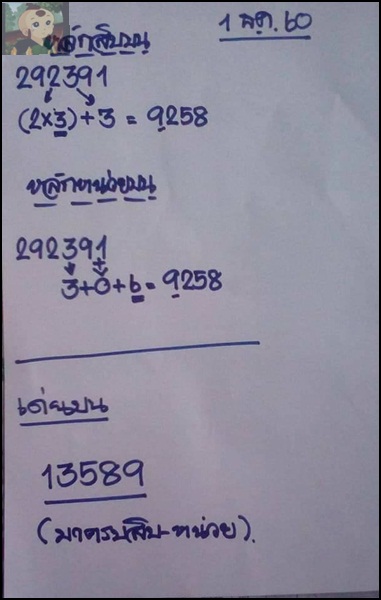 หลักสิบบน
1 ส.ค. 60
292391
(2x3)+3 = 9258
หลักหน่วยบน
292391
3+0+6 = 9258
เด่นบน
13589
(มาครบสิบ-หน่วย).